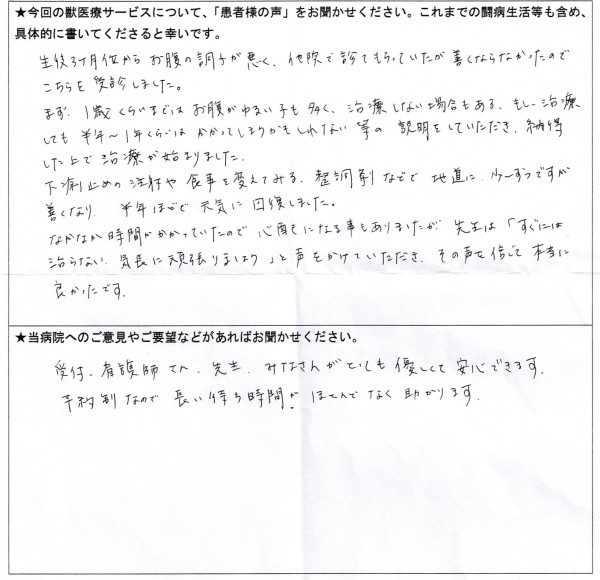 ★今回の獣医療サービスについて、「患者様の声」をお聞かせください。これまでの闘病生活等も含め、
具体的に書いてくださると幸いです。
生後3ヶ月位からお腹の調子が悪く、他院で診てもらっていたが善くならなかったので
こちらを受診しました。
まず、1歳くらいまではお腹がゆるい子も多く、治療しない場合もある、もし治療
しても半年〜1年くらいはかかってしまうかもしれない等の説明をしていただき、納得
した上で治療が始まりました。
下痢止めの注射や食事を変えてみる、整調剤などで地道に、少しずつですが
善くなり、半年ほどで元気に回復しました。
なかなか時間がかかっていたので心配になる事もありましたが、先生は「すぐには
治らない、気長に頑張りましょう」と声をかけていただき、その声を信じて本当に
良かったです。
★当病院へのご意見やご要望などがあればお聞かせください。
受付、看護師さん、先生、みなさんがとっても優しくて安心できます。
予約制なので長い待ち時間がほとんでなく助かります。